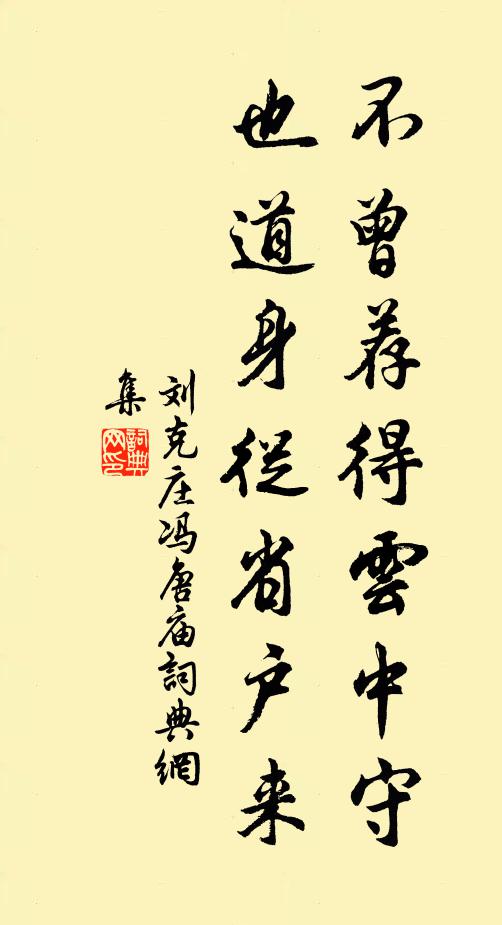 不曾荐得雲中守
也道身從省户来
刘克庄冯唐庙詞典網
集
詞典网印